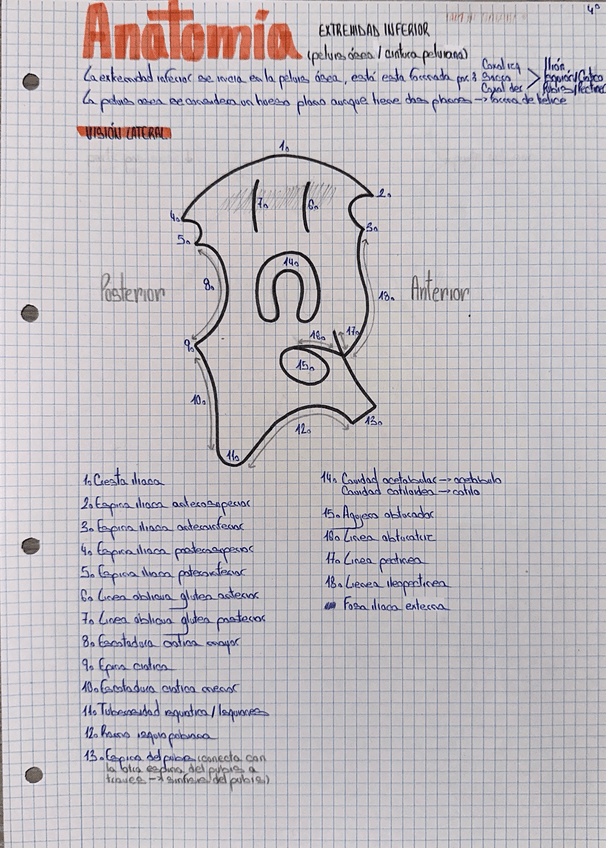 4º
Anatomía
EXTREMIDAD INFERIOR
(pelvis ósea / cintura pelviana)
La extremidad inferior se inicia en la pelvis ósea, está esta formada por: 3
Coxal ica
Sacro
Coxal der
Ilión
Isquión/Ciático
Pubis/Pectineo
La pelvis osea se considera un hueso plano aunque tiene dos planos → forma de hélice
VISIÓN LATERAL
1.
2.
3.
4.
5.
6.
7.
8.
9.
10.
11.
12.
13.
14.
15.
16.
17.
18.
Posterior
Anterior
1. Cresta iliaca
2. Espina iliaca anterosuperior
3. Espina iliaca anteroinferior
4. Espina iliaca posterosuperior
5. Espina iliaca posteroinferior
6. Linea oblicua glutea anterior
7. Linea oblicua glutea posterior
8. Escotadura ciatica mayor
9. Epina ciatica
10. Escotadura ciatica menor
11. Tuberosidad isquiatica / isquiones
12. Rama isquiopubiana
13. Espina del pubis (conecta con
la otra espina del pubis a
traves → sinfisis del pubis)
14. Cavidad acetabular → acetabulo
Cavidad cotiloidea → cotilo
15. Agujero obturador
16. Linea obturatriz
17. Linea pectinea
18. Lienea ileopectinea
Fosa iliaca externa